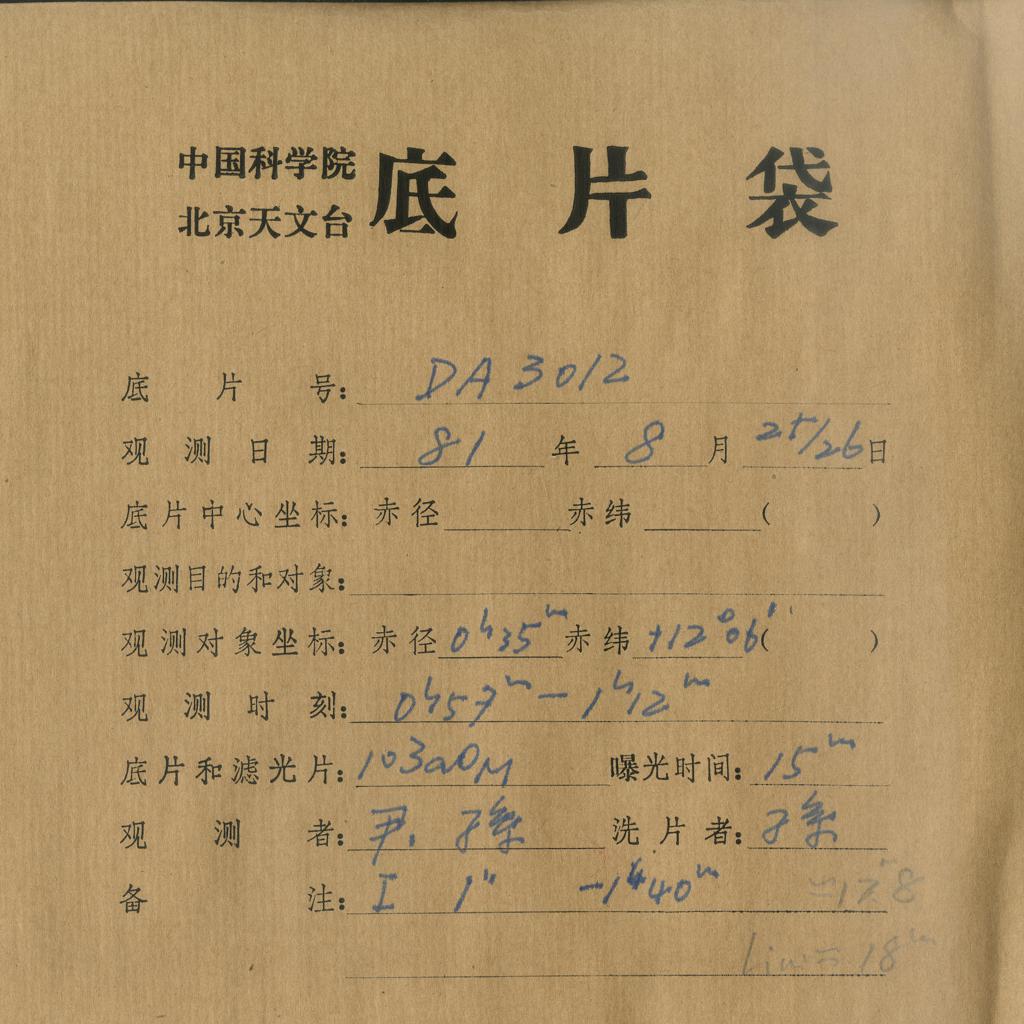 中国科学院
北京天文台
底片袋
底片号: DA 3012
观测日期: 81 年 8 月 25/26 日
底片中心坐标: 赤径 赤纬 ( )
观测目的和对象:
观测对象坐标: 赤径 0h35m 赤纬 +12°06' ( )
观测时刻: 0h57m - 1h12m
底片和滤光片: 103aO 曝光时间: 15m
观测者: 尹. 洗片者:
备注: I 1" -1h40m
18m